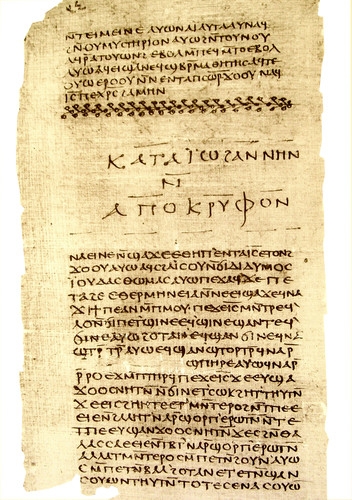 ⲛⲧⲉⲓⲙⲉⲓⲛⲉ ⲁⲩⲱ ⲛⲁⲓ ⲁⲩⲧⲁⲁⲩ ⲛⲁϥ
ϩⲛⲛ ⲟⲩⲙⲩⲥⲧⲏⲣⲓⲟⲛ ⲁⲩⲱ ϩⲛ ⲧⲟⲩⲛⲟⲩ
ⲁϥⲣⲁⲧⲟⲩⲱⲛϩ ⲉⲃⲟⲗ ⲙⲡⲉϥⲙⲧⲟ ⲉⲃⲟⲗ
ⲁⲩⲱ ⲁϥⲉⲓ ϣⲁ ⲛⲉϥϣⲃⲣⲙⲁⲑⲏⲧⲏⲥ ⲁϥ
ⲧⲉⲩⲟ ⲉⲣⲟⲟⲩ ⲛⲛⲉⲛⲧⲁⲡⲥⲱⲣ ϫⲟⲟⲩ ⲛⲁϥ
ⲓⲥ ⲡⲉⲭⲣⲥ ϩⲁⲙⲏⲛ
ⲕⲁⲧⲁ ⲓⲱϩⲁⲛⲛⲏⲛ
ⲛ
ⲁⲡⲟⲕⲣⲩⲫⲟⲛ
ⲛⲁⲉⲓ ⲛⲉ ⲛϣⲁϫⲉ ⲉⲑⲏⲡ ⲉⲛⲧⲁⲓⲥ ⲉⲧⲟⲛϩ
ϫⲟⲟⲩ ⲁⲩⲱ ⲁϥⲥϩⲁⲓⲥⲟⲩ ⲛϭⲓ ⲇⲓⲇⲩⲙⲟⲥ
ⲓⲟⲩⲇⲁⲥ ⲑⲱⲙⲁⲥ ⲁⲩⲱ ⲡⲉϫⲁϥ ϫⲉ ⲡⲉ
ⲧⲁϩⲉ ⲉⲑⲉⲣⲙⲏⲛⲉⲓⲁ ⲛⲛⲉⲉⲓϣⲁϫⲉ ϥⲛⲁ
ϫⲓ ϯⲡⲉ ⲁⲛ ⲙⲡⲙⲟⲩ ⲡⲉϫⲉ ⲓⲥ ⲙⲛⲧⲣⲉϥ
ⲗⲟ ⲛϭⲓ ⲡⲉⲧϣⲓⲛⲉ ⲉϥϣⲓⲛⲉ ϣⲁⲛⲧⲉϥ
ϭⲓⲛⲉ ⲁⲩⲱ ϩⲟⲧⲁⲛ ⲉϥϣⲁⲛϭⲓⲛⲉ ϥⲛⲁ
ϣⲧⲣⲧⲣ ⲁⲩⲱ ⲉϥϣⲁⲛϣⲧⲟⲣⲧⲣ ϥⲛⲁⲣ
ϣⲡⲏⲣⲉ ⲁⲩⲱ ϥⲛⲁⲣ
ⲣⲣⲟ ⲉϫⲙ ⲡⲧⲏⲣϥ ⲡⲉϫⲉ ⲓⲥ ϫⲉ ⲉⲩϣⲁ
ϫⲟⲟⲥ ⲛⲏⲧⲛ ⲛϭⲓ ⲛⲉⲧⲥⲱⲕ ϩⲏⲧ ⲧⲏⲩⲧⲛ
ϫⲉ ⲉⲓⲥϩⲏⲏⲧⲉ ⲉⲧⲙⲛⲧⲉⲣⲟ ϩⲛ ⲧⲡⲉ ⲉ
ⲉⲓⲉ ⲛϩⲁⲗⲏⲧ ⲛⲁⲣ ϣⲟⲣⲡ ⲉⲣⲱⲧⲛ ⲛⲧⲉ
ⲧⲡⲉ ⲉⲩϣⲁⲛϫⲟⲟⲥ ⲛⲏⲧⲛ ϫⲉ ⲥϩⲛ ⲑⲁ
ⲗⲁⲥⲥⲁ ⲉⲉⲓⲉ ⲛⲧⲃⲧ ⲛⲁⲣ ϣⲟⲣⲡ ⲉⲣⲱⲧⲛ
ⲁⲗⲗⲁ ⲧⲙⲛⲧⲉⲣⲟ ⲥⲙⲡⲉⲧⲛϩⲟⲩⲛ ⲁⲩⲱ
ⲥⲙⲡⲉⲧⲛⲃⲁⲗ ϩⲟⲧⲁⲛ ⲉⲧⲉⲧⲛϣⲁⲛ
ⲥⲟⲩⲱⲛ ⲧⲏⲩⲧⲛ ⲧⲟⲧⲉ ⲥⲉⲛⲁⲥⲟⲩⲱ